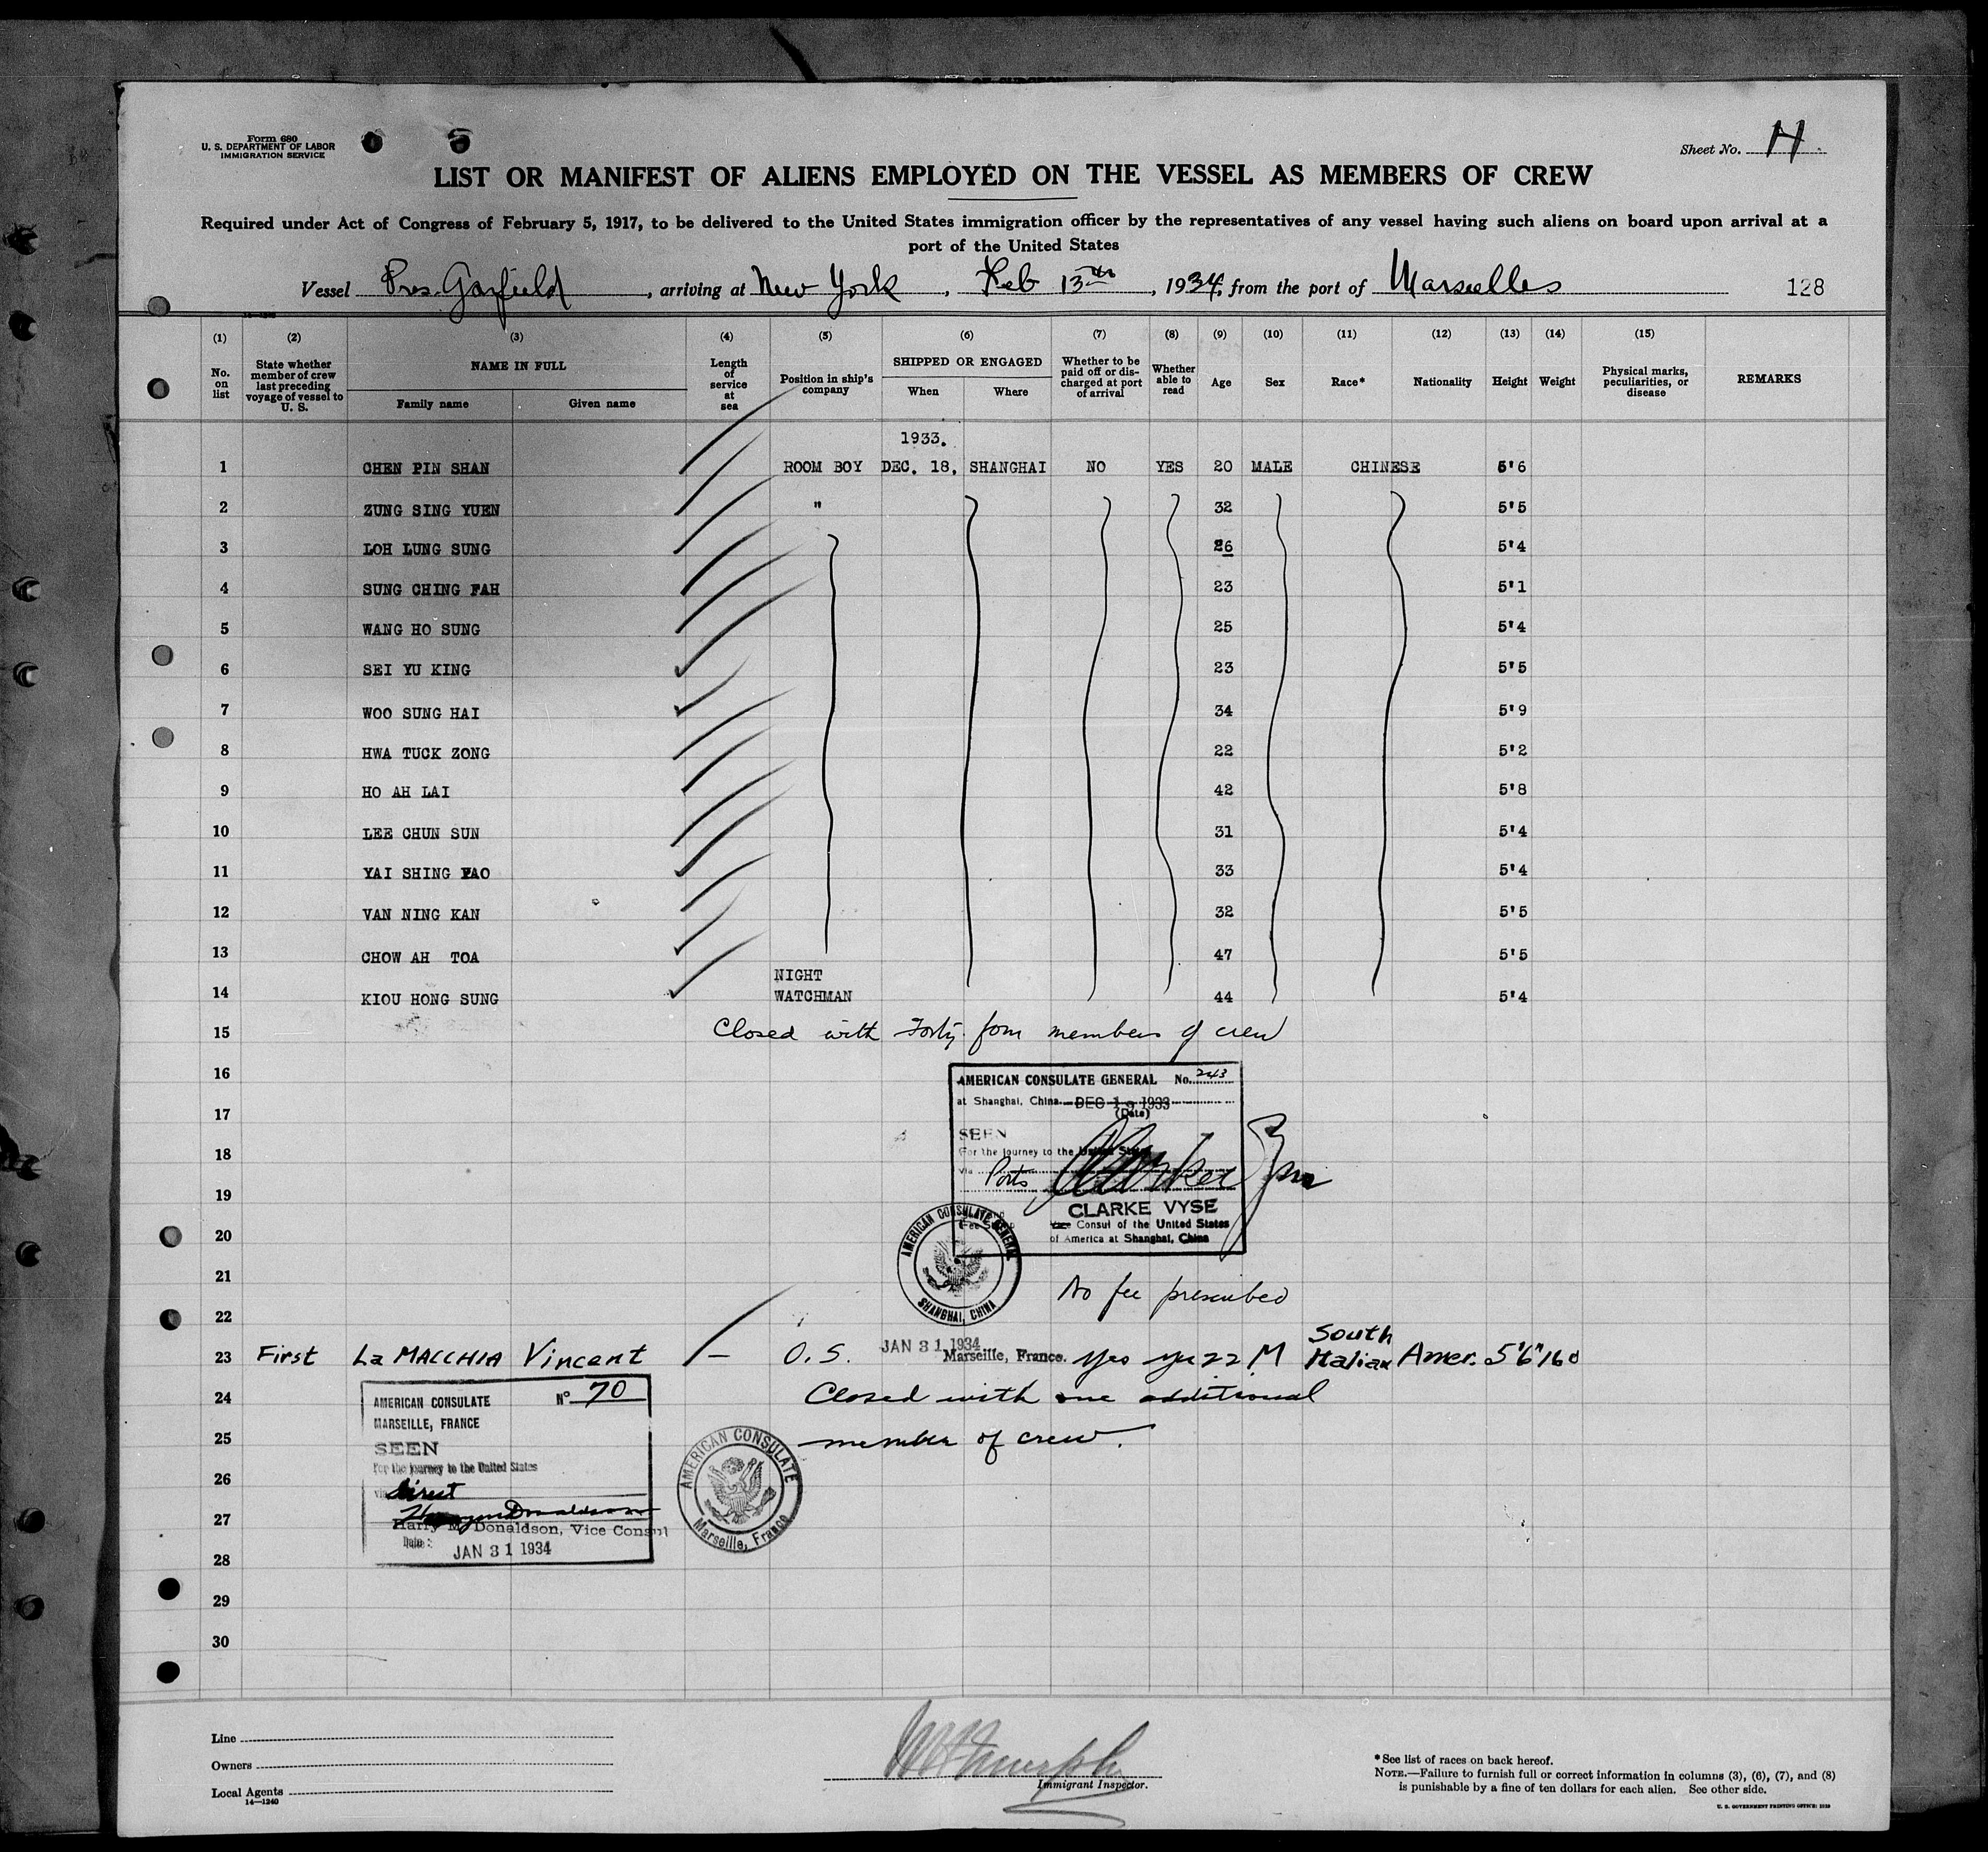 Form 680
U. S. DEPARTMENT OF LABOR
IMMIGRATION SERVICE
Sheet No. H
LIST OR MANIFEST OF ALIENS EMPLOYED ON THE VESSEL AS MEMBERS OF CREW
Required under Act of Congress of February 5, 1917, to be delivered to the United States immigration officer by the representatives of any vessel having such aliens on board upon arrival at a
port of the United States
Vessel Pres. Garfield, arriving at New York, Feb 13th, 1934, from the port of Marseilles 128
(1) (2) (3) (4) (5) (6) (7) (8) (9) (10) (11) (12) (13) (14) (15)
No. on list State whether member of crew last preceding voyage of vessel to U. S. NAME IN FULL Family name Given name Length of service at sea Position in ship's company SHIPPED OR ENGAGED When Where Whether to be paid off or discharged at port of arrival Whether able to read Age Sex Race* Nationality Height Weight Physical marks, peculiarities, or disease REMARKS
1933.
1 CHEN PIN SHAN ROOM BOY DEC. 18, SHANGHAI NO YES 20 MALE CHINESE 5'6
2 ZUNG SING YUEN " 32 5'5
3 LOH LUNG SUNG 26 5'4
4 SUNG CHING FAH 23 5'1
5 WANG HO SUNG 25 5'4
6 SEI YU KING 23 5'5
7 WOO SUNG HAI 34 5'9
8 HWA TUCK ZONG 22 5'2
9 HO AH LAI 42 5'8
10 LEE CHUN SUN 31 5'4
11 YAI SHING FAO 33 5'4
12 VAN NING KAN 32 5'5
13 CHOW AH TOA 47 5'5
NIGHT
14 KIOU HONG SUNG WATCHMAN 44 5'4
15 Closed with Forty four members of crew
16
AMERICAN CONSULATE GENERAL No. 243
at Shanghai, China DEC 1 1933
17
(Date)
SEEN
18
For the journey to the United States
via Ports
19
CLARKE VYSE
Vice Consul of the United States
20
of America at Shanghai, China
AMERICAN CONSULATE GENERAL
SHANGHAI, CHINA
21 No fee prescribed
22
23 First La MACCHIA Vincent – O.S. JAN 31 1934 Marseille, France. Yes yes 22 M South Italian Amer. 5'6" 160
24 Closed with one additional
25 member of crew.
AMERICAN CONSULATE Nº 70
MARSEILLE, FRANCE
SEEN
For the journey to the United States
via direct
Harry M Donaldson, Vice Consul
Date: JAN 31 1934
AMERICAN CONSULATE
Marseille, France
26
27
28
29
30
Line
Owners
Local Agents
14—1240
Immigrant Inspector.
*See list of races on back hereof.
NOTE.—Failure to furnish full or correct information in columns (3), (6), (7), and (8)
is punishable by a fine of ten dollars for each alien. See other side.